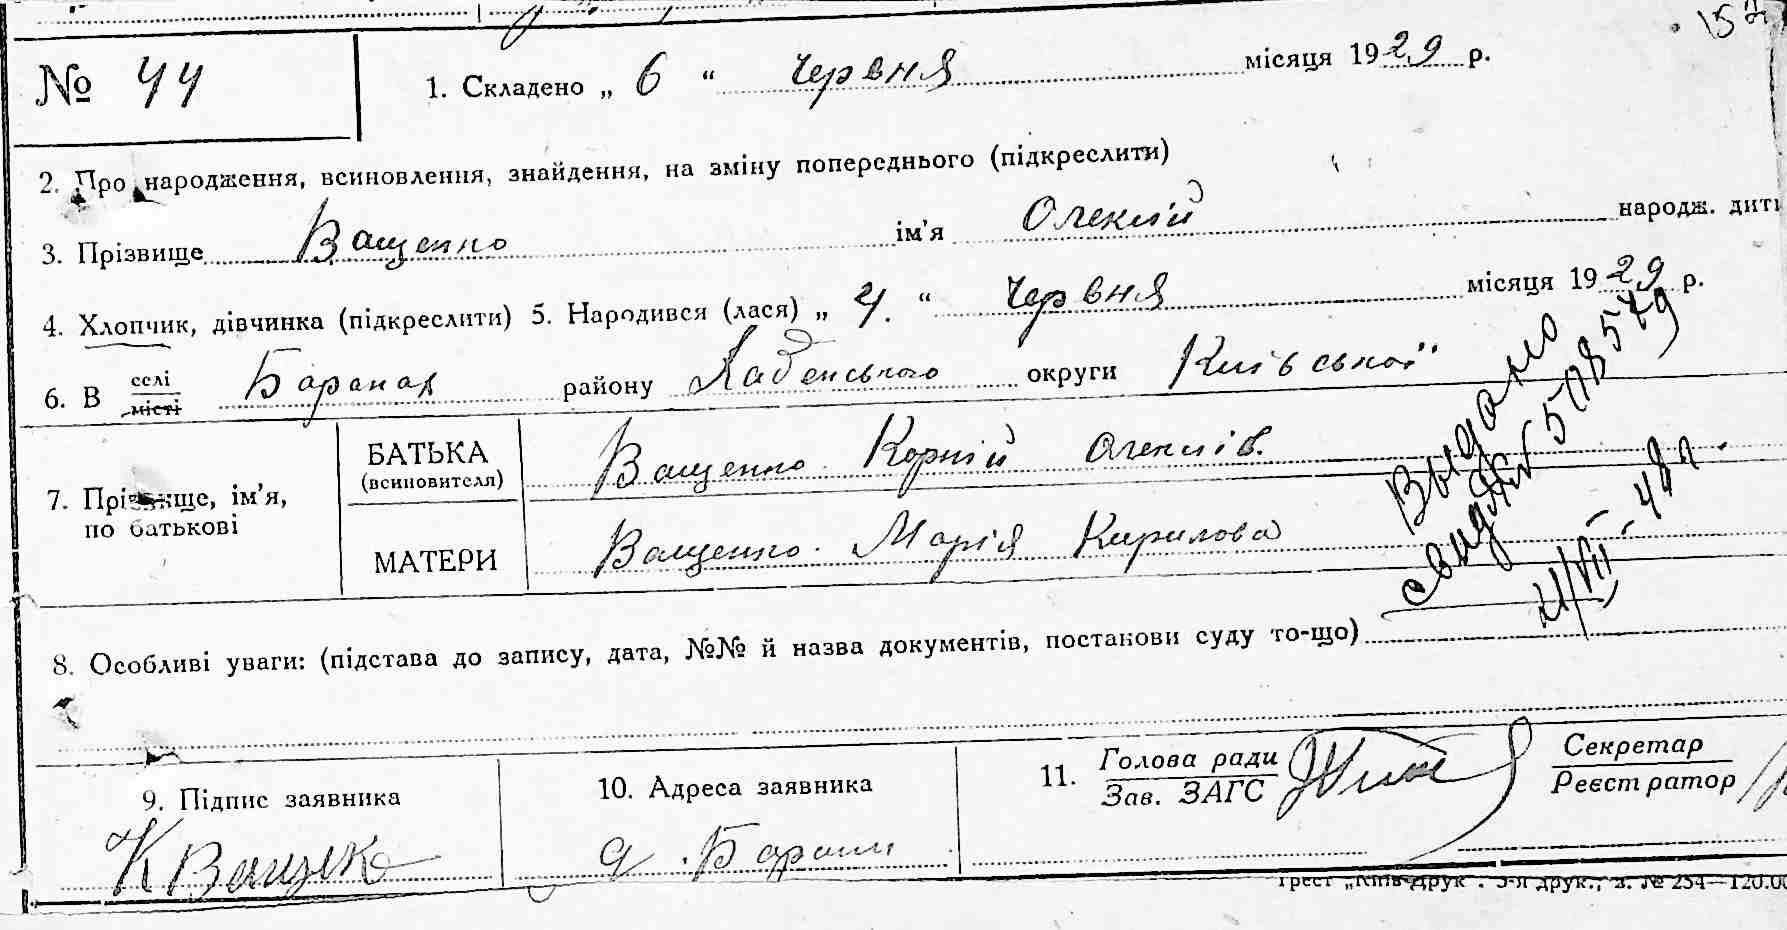 157
№ 44
1. Складено „ 6 “ Червня місяця 1929 р.
2. Про народження, всиновлення, знайдення, на зміну попереднього (підкреслити)
3. Прізвище Ващенко ім’я Олексій народж. дит
4. Хлопчик, дівчинка (підкреслити) 5. Народився (лася) „ 4. “ Червня місяця 1929 р.
6. В селі місті Баранах району округи Київської
7. Прізвище, ім’я, по батькові
БАТЬКА (всиновителя) Ващенко Корній Олексіїв.
МАТЕРИ Ващенко Марія Кирилова
Выдано
свид ЯЯ № 508579
48 г.
8. Особливі уваги: (підстава до запису, дата, №№ й назва документів, постанови суду то-що)
9. Підпис заявника
К Ващенко
10. Адреса заявника
11. Голова ради
Зав. ЗАГС
Секретар
Реєстратор
Трест „Київ-Друк“. 3-я друк., з. № 254—120.00